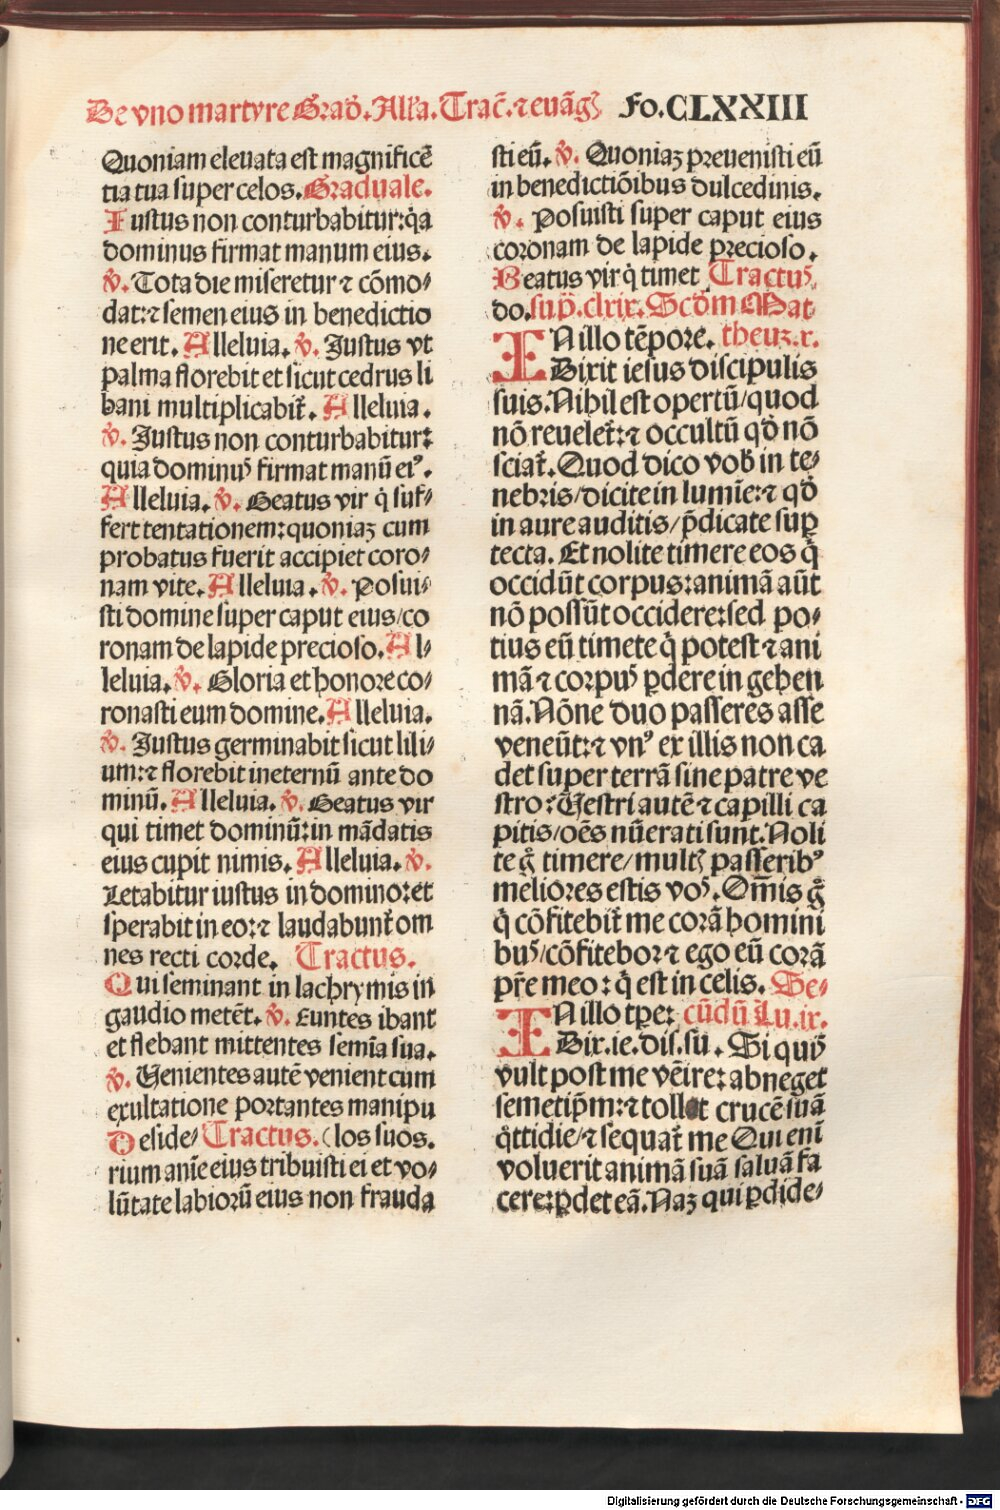 De vno martyre Grad̄. Alľa. Trac̄. ⁊ euāgꝭ Fo. CLXXIII
Quoniam eleuata est magnificē
tia tua super celos. Graduale.
Iustus non conturbabitur: q̄a
dominus firmat manum eius.
℣. Tota die miseretur ⁊ cōmo⸗
dat: ⁊ semen eius in benedictio
ne erit. Alleluia. ℣. Justus vt
palma florebit et sicut cedrus li
bani multiplicabit̄. Alleluia.
℣. Justus non conturbabitur:
quia dominus firmat manū eiꝰ.
Alleluia. ℣. Beatus vir q̄ suf⸗
fert tentationem: quoniaꝫ cum
probatus fuerit accipiet coro⸗
nam vite. Alleluia. ℣. Posui⸗
sti domine super caput eius/ co
ronam de lapide precioso. Al⸗
leluia. ℣. Gloria et honore co⸗
ronasti eum domine. Alleluia.
℣. Justus germinabit sicut lili⸗
um: ⁊ florebit in eternū ante do
minū. Alleluia. ℣. Beatus vir
qui timet dominū: in mādatis
eius cupit nimis. Alleluia. ℣.
Letabitur iustus in domino: et
sperabit in eo: ⁊ laudabunt̄ om
nes recti corde. Tractus.
Qui seminant in lachrymis in
gaudio metēt. ℣. Euntes ibant
et flebant mittentes semīa sua.
℣. Venientes autē venient cum
exultatione portantes manipu
Deside⸗ Tractus. (los suos.
rium anīe eius tribuisti ei et vo⸗
lūtate labiorū eius non frauda
sti eū. ℣. Quoniaꝫ preuenisti eū
in benedictiōibus dulcedinis.
℣. Posuisti super caput eius
coronam de lapide precioso.
Beatus vir q̄ timet Tractus.
do. sup̄. clxix. Scd̄m Mat
IN illo tēpore. theuꝫ. x.
Dixit iesus discipulis
suis. Nihil est opertū/ quod
nō reuelet̄: ⁊ occultū qd̄ nō
sciat̄. Quod dico vob̄ in te⸗
nebris/ dicite in lumīe: ⁊ qd̄
in aure auditis/ p̄dicate suꝑ
tecta. Et nolite timere eos q̄
occidūt corpus: animā aūt
nō possūt occidere: sed po⸗
tius eū timete q̄ potest ⁊ ani
mā ⁊ corpus ꝑdere in gehen
nā. Nōne duo passeres asse
veneūt: ⁊ vnꝰ ex illis non ca
det super terrā sine patre ve
stro: Vestri autē ⁊ capilli ca
pitis/ oēs nūerati sunt. Noli
te g̊ timere/ multꝭ passeribꝰ
meliores estis vos. Om̄is g̊
q̄ cōfitebit̄ me corā homini
bus/ cōfitebor ⁊ ego eū corā
pr̄e meo: q̄ est in celis. Se⸗
IN illo tꝑe: cūdū Lu. ix.
Dix. ie. dis. su. Si quis
vult post me vēire: abneget
semetip̄m: ⁊ tollat crucē suā
q̄ttidie/ ⁊ sequat̄ me Qui enī
voluerit animā suā saluā fa
cere: ꝑdet eā. Naꝫ qui ꝑdide⸗
Digitalisierung gefördert durch die Deutsche Forschungsgemeinschaft - DFG